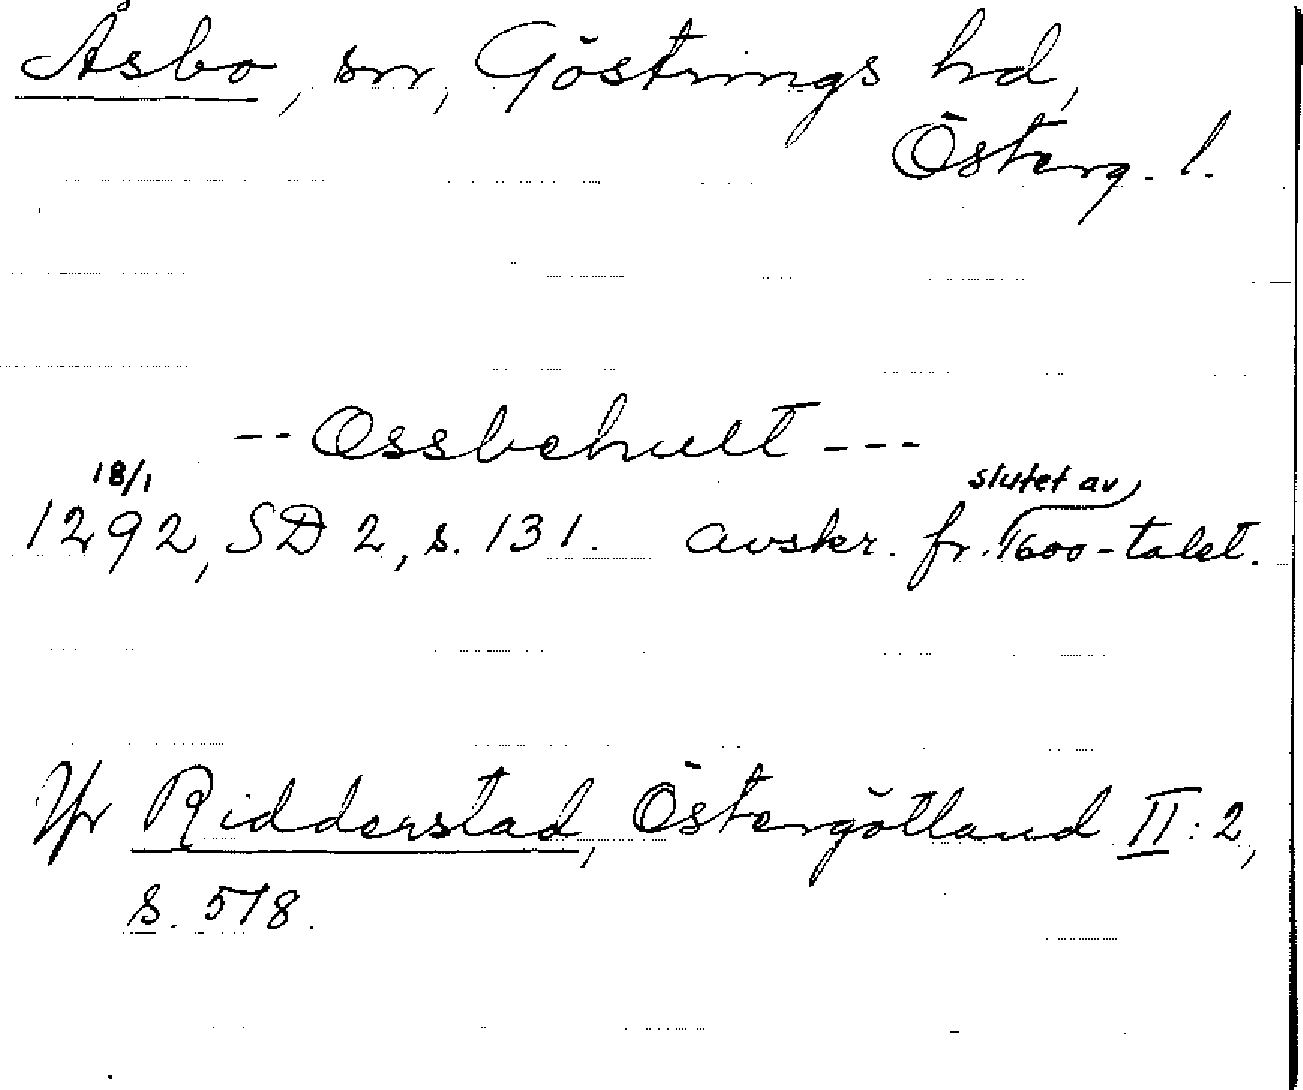 Åsbo, sn, Göstrings hd,
Österg. l.
-- Ossbehult ---
18/1 slutet av
1292, SD 2, s. 131. avskr. fr. 1600-talet.
Jfr Ridderstad, Östergötland II:2,
s. 578.